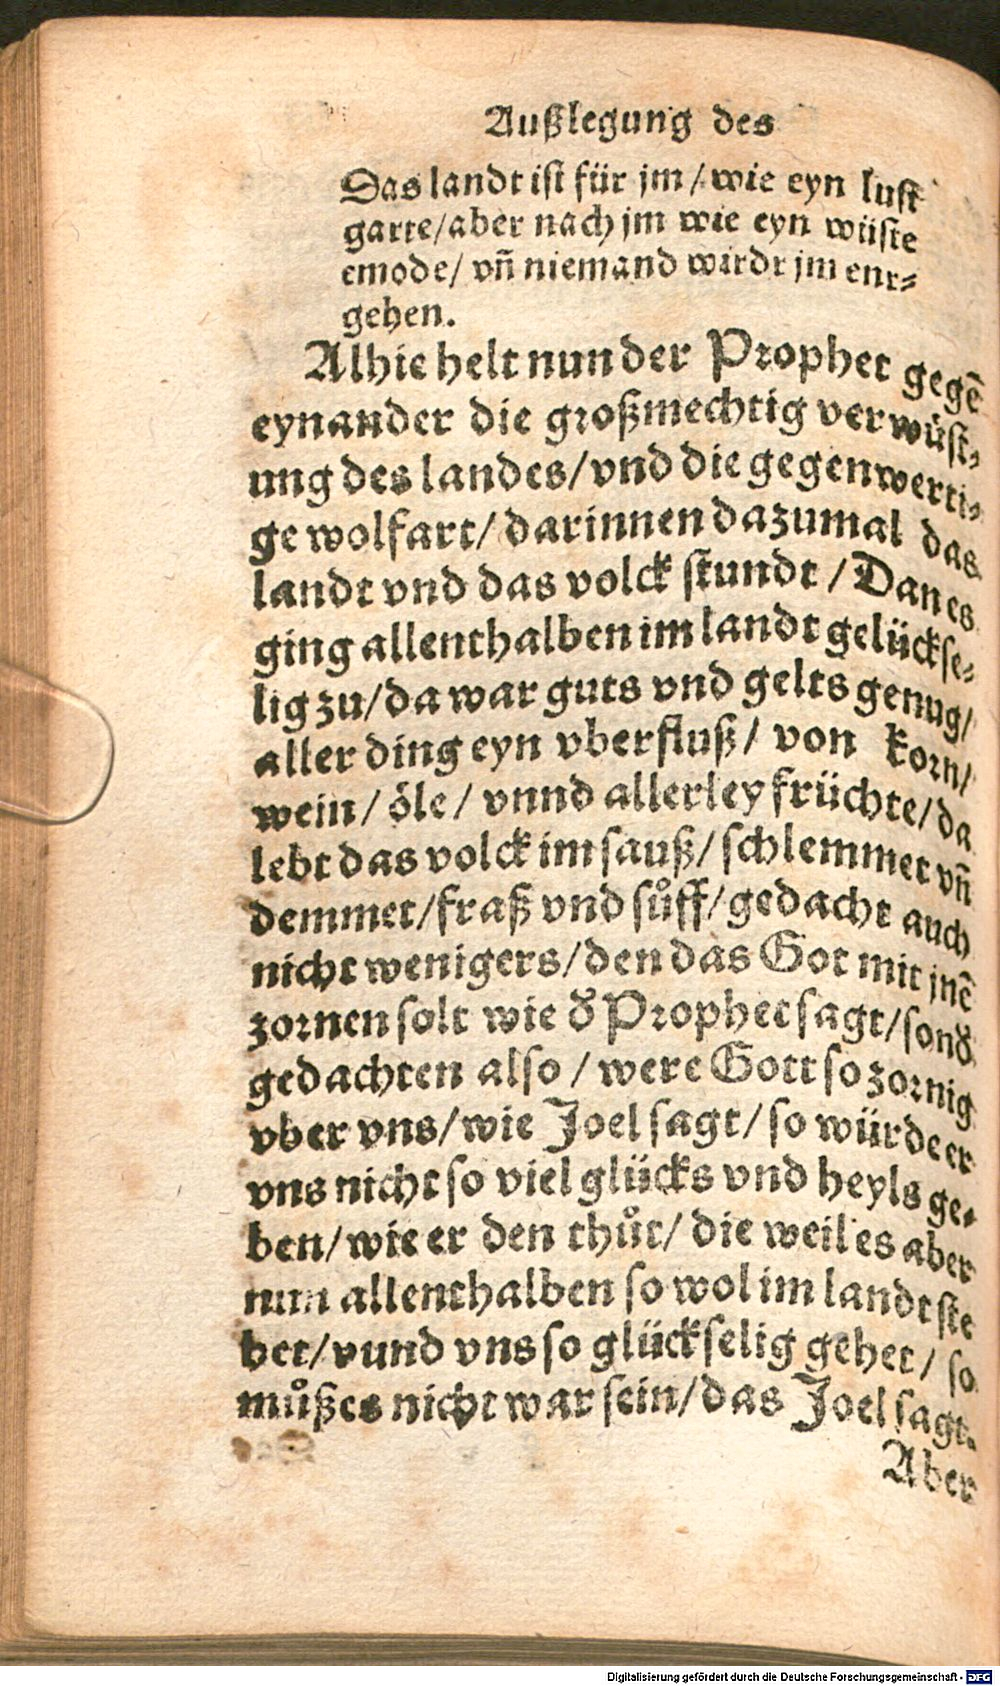 Außlegung des
Das landt ist für jm / wie eyn lust
garte / aber nach jm wie eyn wüste
emode / vñ niemand wirdt jm ent⸗
gehen.
Alhie helt nun der Prophet gegē
eynander die großmechtig verwüst⸗
ung des landes / vnd die gegenwerti⸗
ge wolfart / darinnen dazumal das
landt vnd das volck stundt / Dan es
ging allenthalben im landt gelückse⸗
lig zu / da war guts vnd gelts genug /
aller ding eyn vberfluß / von korn /
wein / öle / vnnd allerley früchte / da
lebt das volck im sauß / schlemmet vñ
demmet / fraß vnd sůff / gedacht auch
nicht wenigers / den das Got mit jnē
zornen solt wie d̕ Prophet sagt / sond̕
gedachten also / were Gott so zornig
vber vns / wie Joel sagt / so würde er
vns nicht so viel glücks vnd heyls ge⸗
ben / wie er den thůt / die weil es aber
nun allenthalben so wol im landt ste
het / vund vns so glückselig gehet / so
můß es nicht war sein / das Joel sagt.
Aber
Digitalisierung gefördert durch die Deutsche Forschungsgemeinschaft - DFG